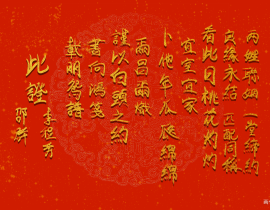 兩姓聯姻一堂締約
良緣永結 匹配同稱
看此日桃花灼灼
宜室宜家
卜他年瓜瓞綿綿
爾昌爾熾
謹以白頭之約
書向鴻箋
載明鴛譜
此證
李程秀
邵群